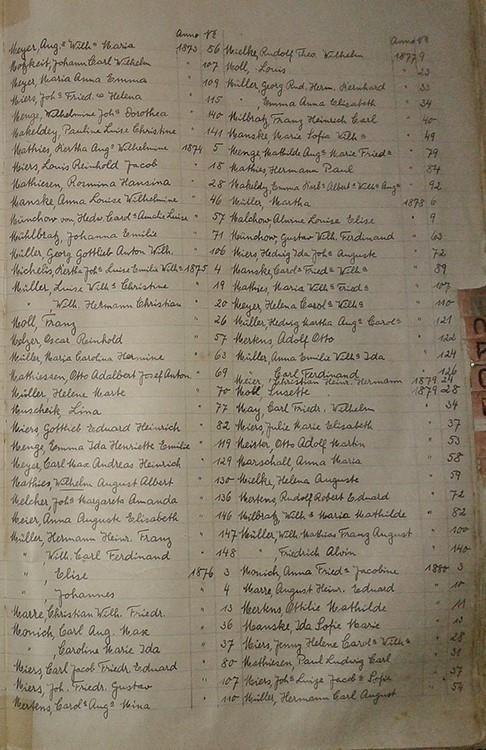 Anno No
Meyer, Aug. Wilh. Maria 1873 56
Motzkeit, Johann Carl Wilhelm " 107
Meyer, Maria Anna Emma " 109
Miers, Joh. Fried. Helena " 115
Menge, Wilhelmine Joh. Dorothea " 140
Makeldey, Pauline Luise Christine " 141
Mathies, Bertha Aug. Wilhelmine 1874 5
Miers, Louis Reinhold Jacob " 18
Mathiesen, Rosmina Hansina " 28
Manske, Anna Louise Wilhelmine " 46
Münchow von Hedr. Carol. Amalie Luise " 57
Mühlbrat, Johanna Emilie " 71
Müller, Georg Gottlieb Anton Wilh. " 106
Michelis, Bertha Joh. Luise Emilie Wilh. 1875 4
Müller, Luise Wilh. Christine " 19
" , Wilh. Hermann Christian " 20
Moll, Franz " 26
Melzer, Oscar Reinhold " 57
Müller, Maria Carolina Hermine " 63
Mathiessen, Otto Adalbert Josef Anton " 69
Müller, Helene Marte " 70
Muscheik, Lina " 77
Miers, Gottlieb Eduard Heinrich " 82
Menge, Emma Ida Henriette Emilie " 119
Meyer, Carl Max Andreas Heinrich " 129
Mathies, Wilhelm August Albert " 130
Melcher, Joh. Margareta Amanda " 136
Meier, Anna Auguste Elisabeth " 146
Müller Hermann Heinr. Franz " 147
" , Wilh. Carl Ferdinand " 148
" , Elise 1876 3
" , Johannes " 4
Marre, Christian Wilh. Friedr. " 13
Monich, Carl Aug. Max " 36
" , Caroline Marie Ida " 37
Miers, Carl Jacob Friedr. Eduard " 80
Miers, Joh. Friedr. Gustav " 107
Mertens, Carol. Aug. Mina " 110
Anno No
Mielke, Rudolf Theo. Wilhelm 1877 9
Moll, Louis " 23
Müller, Georg Rud. Herm. Bernhard " 33
" , Emma Anna Elisabeth " 34
Milbratz, Franz Heinrich Carl " 40
Manske, Marie Sofia Wilh. " 49
Menge, Mathilde Aug. Marie Fried. " 79
Mathies Hermann Paul " 84
Makeldy, Emma Barb. Albert. Wilh. Aug. " 92
Müller, Martha 1878 6
Malchow Alwine Louise Elise " 9
Münchow, Gustav Wilh. Ferdinand " 63
Miers Hedwig Ida Joh. Auguste " 72
Manske, Carol. Fried. Wilh. " 89
Mathies, Maria Wilh. Fried. " 107
Meyer, Helena Carol. Wilh. " 110
Müller, Hedwig Martha Aug. Carol. " 121
Mertens, Adolf Otto " 122
Müller, Anna Emilie Wilh. Ida " 124
" , Carl Ferdinand " 126
Meier, Christian Heinr. Hermann 1879 24
Moll, Lusette 1879 28
May, Carl Friedr. Wilhelm " 34
Miers, Julie Marie Elisabeth " 37
Meister, Otto Adolf Martin " 53
Marschall, Anna Maria " 58
Mielke, Helena Auguste " 59
Mertens, Rudolf Robert Eduard " 72
Milbratz, Wilh. Maria Mathilde " 82
Müller, Wilh. Mathias Franz August " 100
" , Friedrich Alwin " 140
Monich, Anna Fried. Jacobine 1880 3
Marre, August Heinr. Eduard " 10
Mertens Ottilie Mathilde " 11
Manske, Ida Sofie Marie " 13
Miers, Jenny Helene Carol. Wilh. " 28
Mathiesen, Paul Ludwig Carl " 31
Miers, Joh. Luise Jacob. Sofie " 37
Müller, Hermann Carl August " 54